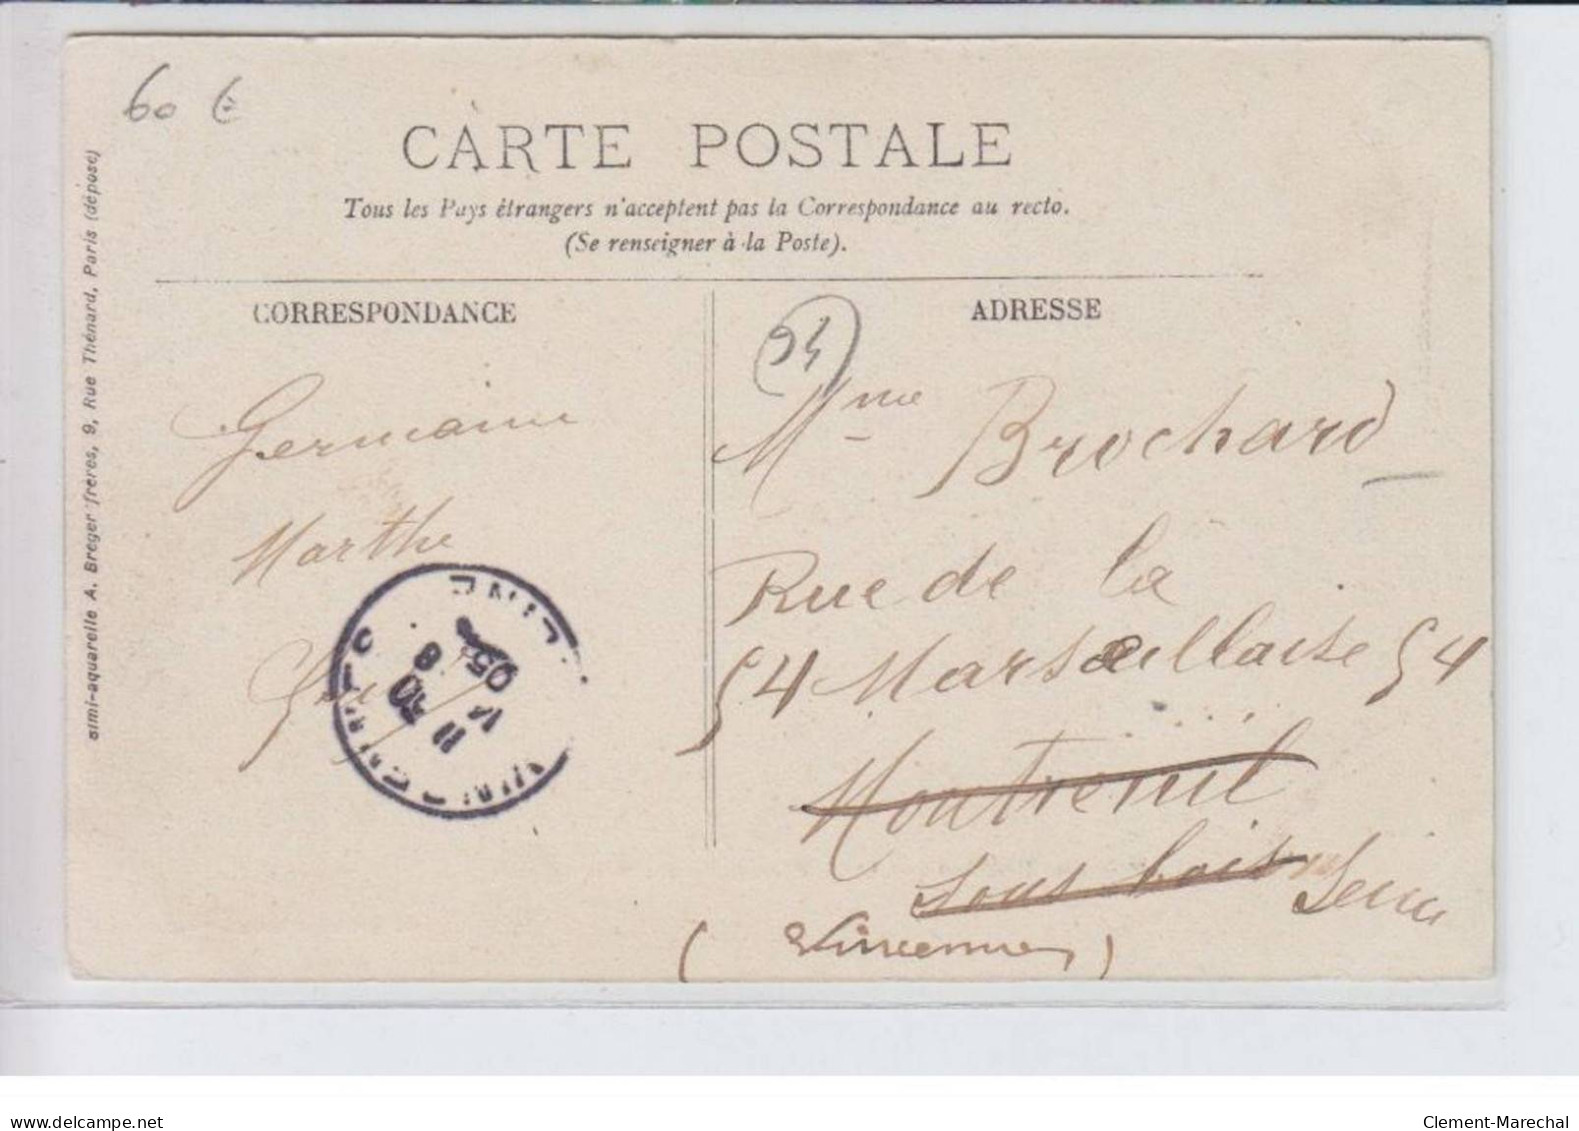 60 €
CARTE POSTALE
Tous les Pays étrangers n'acceptent pas la Correspondance au recto.
(Se renseigner à la Poste).
simi-aquarelle A. Breger frères, 9, Rue Thénard, Paris (déposé)
CORRESPONDANCE
Germaine
Marthe
VINCENNES
SEINE
11 30
8
05
ADRESSE
94
Mme Brochard
Rue de la
54 Marseillaise 54
Montreuil
sous bois Seine
(Vincennes)
www.delcampe.net
Clement-Marechal